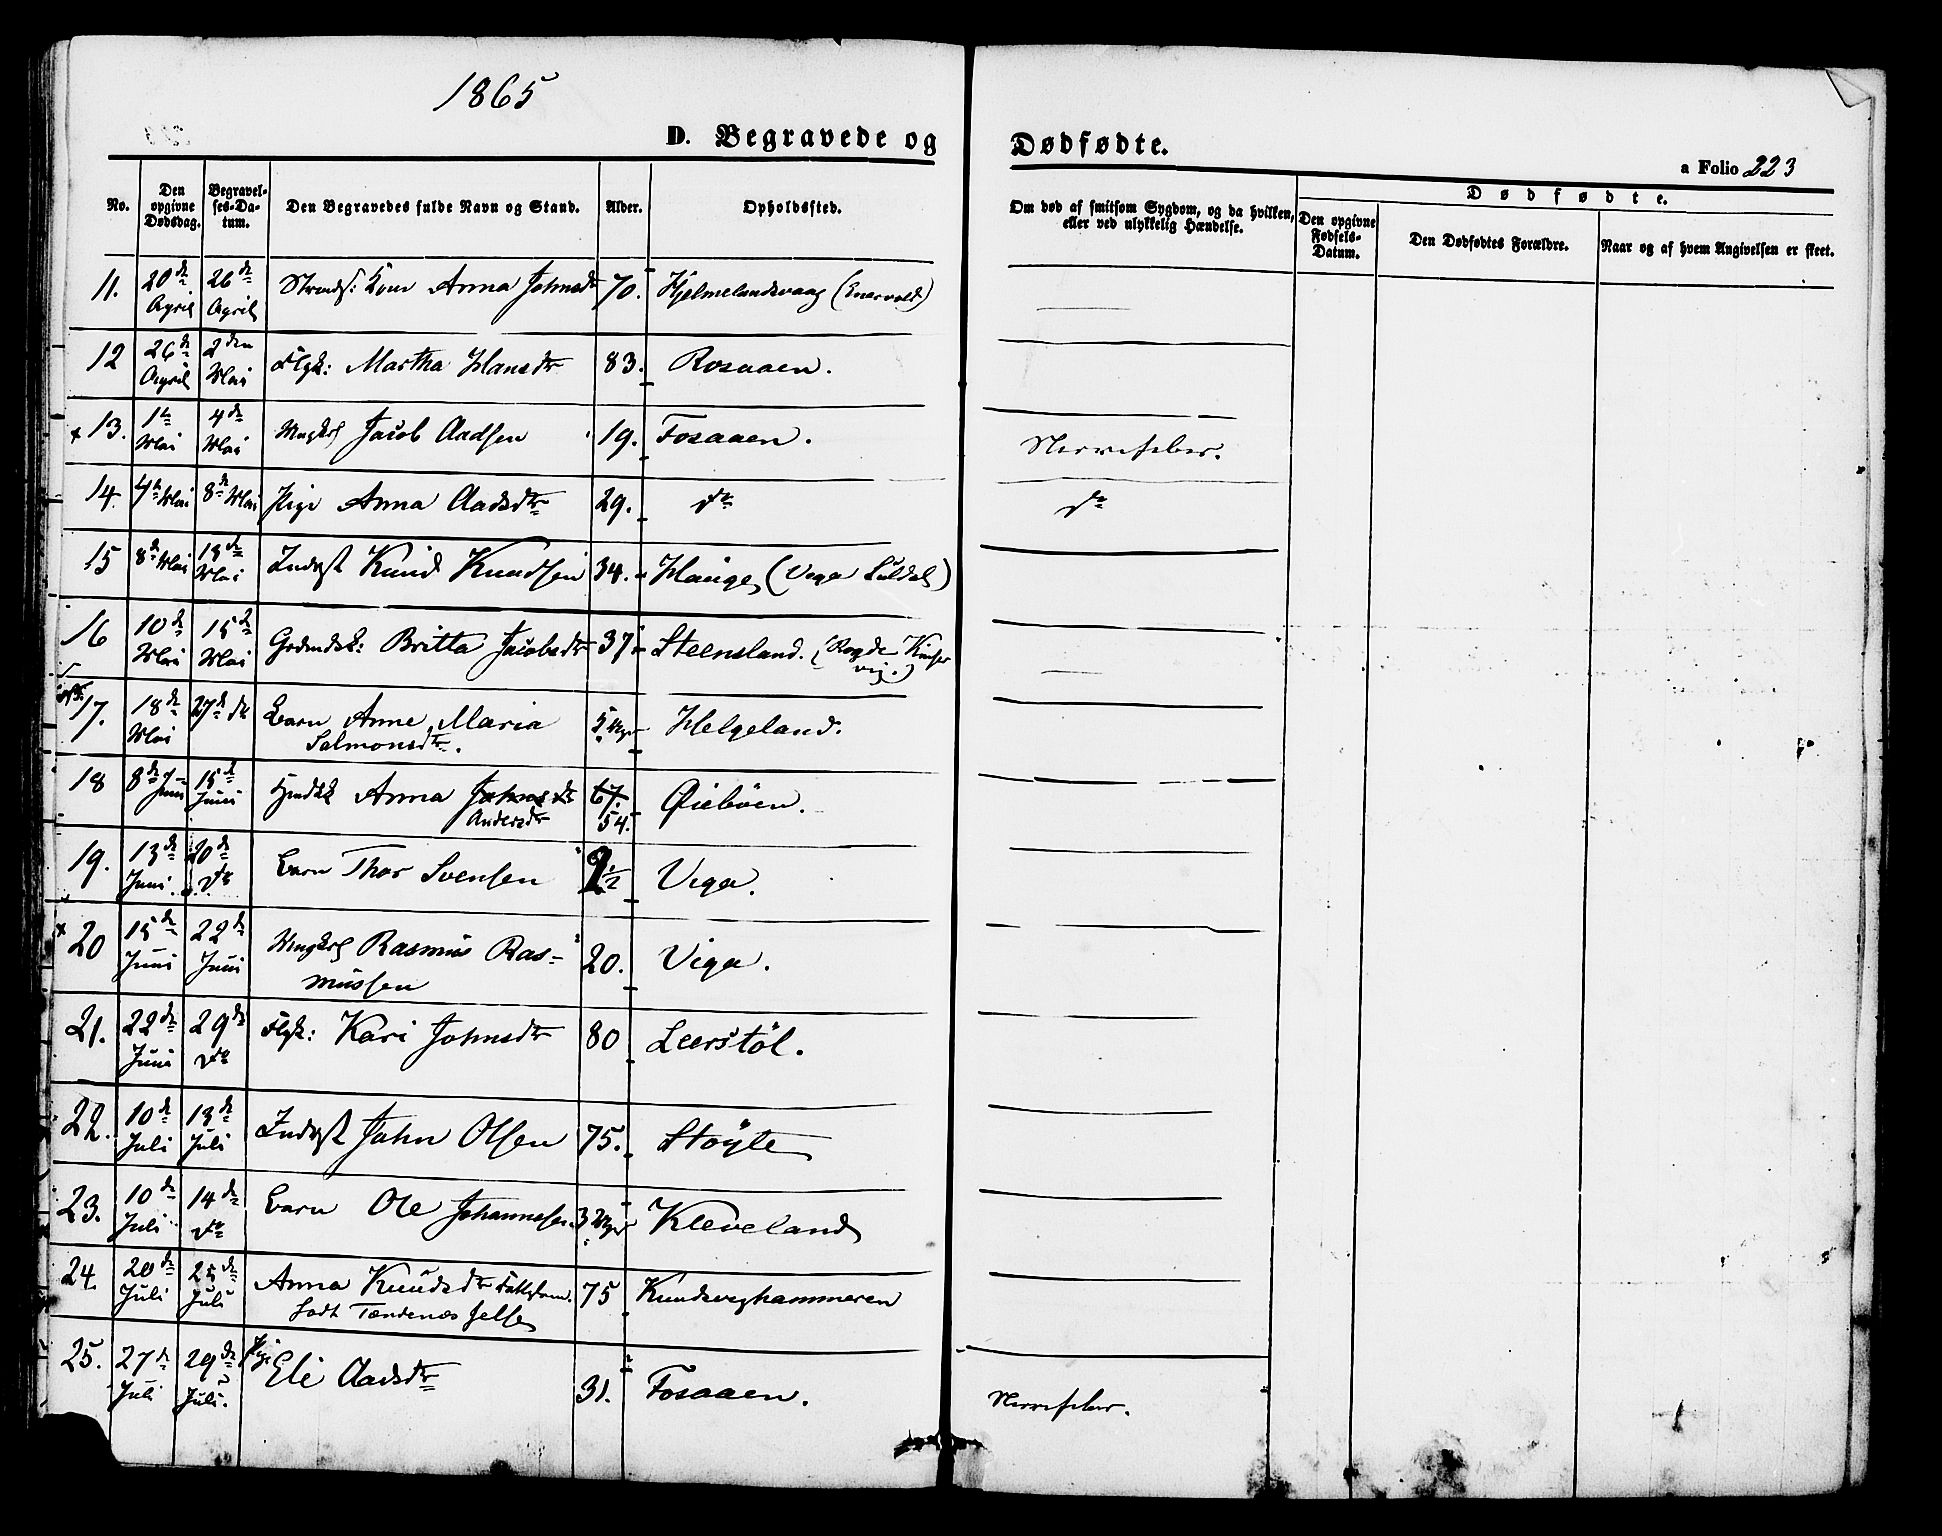 1865
D. Begravede og Dødfødte.
a Folio 223
No.
Den opgivne Dødsdag.
Begravelses-Datum.
Den Begravedes fulde Navn og Stand.
Alder.
Opholdssted.
Om død af smitsom Sygdom, og da hvilken,
eller ved ulykkelig Hændelse.
Dødfødte.
Den opgivne Fødsels-Datum.
Den Dødfødtes Forældre.
Naar og af hvem Angivelsen er skeet.
11. 20de April 26de April Kone Anna Johnsdtr 70. Hjelmelandsvaag
12 26de April 2den Mai Flgk: Martha Hansdtr 83. Rosaaen.
13. 1ste Mai 4de Mai Ungkrl Jacob Aadsen 19. Fosaaen. Nervefeber.
14. 4de Mai 8de Mai Pige Anna Aadsdtr 29. do do
15 8de Mai 13de Mai Inderst Knud Knudsen 34. Hauge (Vega Suldal)
16 10de Mai 15de Mai Grdmdsk: Britta Jacobsdtr 37 Steensland. (Rogde Kinservig.)
17. 18de Mai 27de do Barn Anne Maria
Salmonsdtr. 5 Uger Helgeland.
18 8de Juni 15de Juni Anna Johnsdtr
Andersdtr 67. 54. Øiebøen.
19. 13de Juni 20de do Barn Thor Svensen 1/2 Viga.
20 15de Juni 22de Juni Ungkrl Rasmus Ras-
mussen 20. Viga.
21. 22de Juni 29de do Flgk: Kari Johnsdtr 80 Leerstøl.
22. 10de Juli 13de Juli Inderst John Olsen 75. Støyle
23. 10de Juli 14de do Barn Ole Johannesen 3 Uger Kleveland
24. 20de Juli 25de Juli Anna Knudsdtr
født 75 Kundsveghammeren
25. 27de Juli 29de Juli. Pige Eli Aadsdtr 31. Fosaaen. Nervefeber.